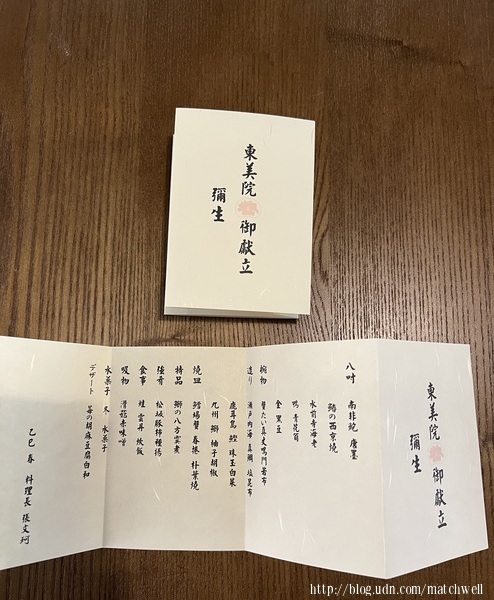 東美院 御献立
彌生
東美院 御献立
彌生
八吋 南非鮑 唐墨
鰆の西京焼
水前寺海老
鴨 青花菊
金 黒豆
椀物 蟹たい真丈鳴門若布
造り 瀬戸内海 真鯛 塩昆布
鹿茸蒿 鰹 珠玉白菜
九州 鰤 柚子胡椒
焼皿 鱈場蟹 春捲 朴葉焼
特品 鰤の八方雲煮
強肴 松坂豚柿種揚
食事 蛙 雲丹 炊飯
吸物 滑菇赤味噌
水菓子 木 水菓子
デザート 苺の胡麻豆腐白和
乙巳 春 料理長 張文珂
http://blog.udn.com/matchwell